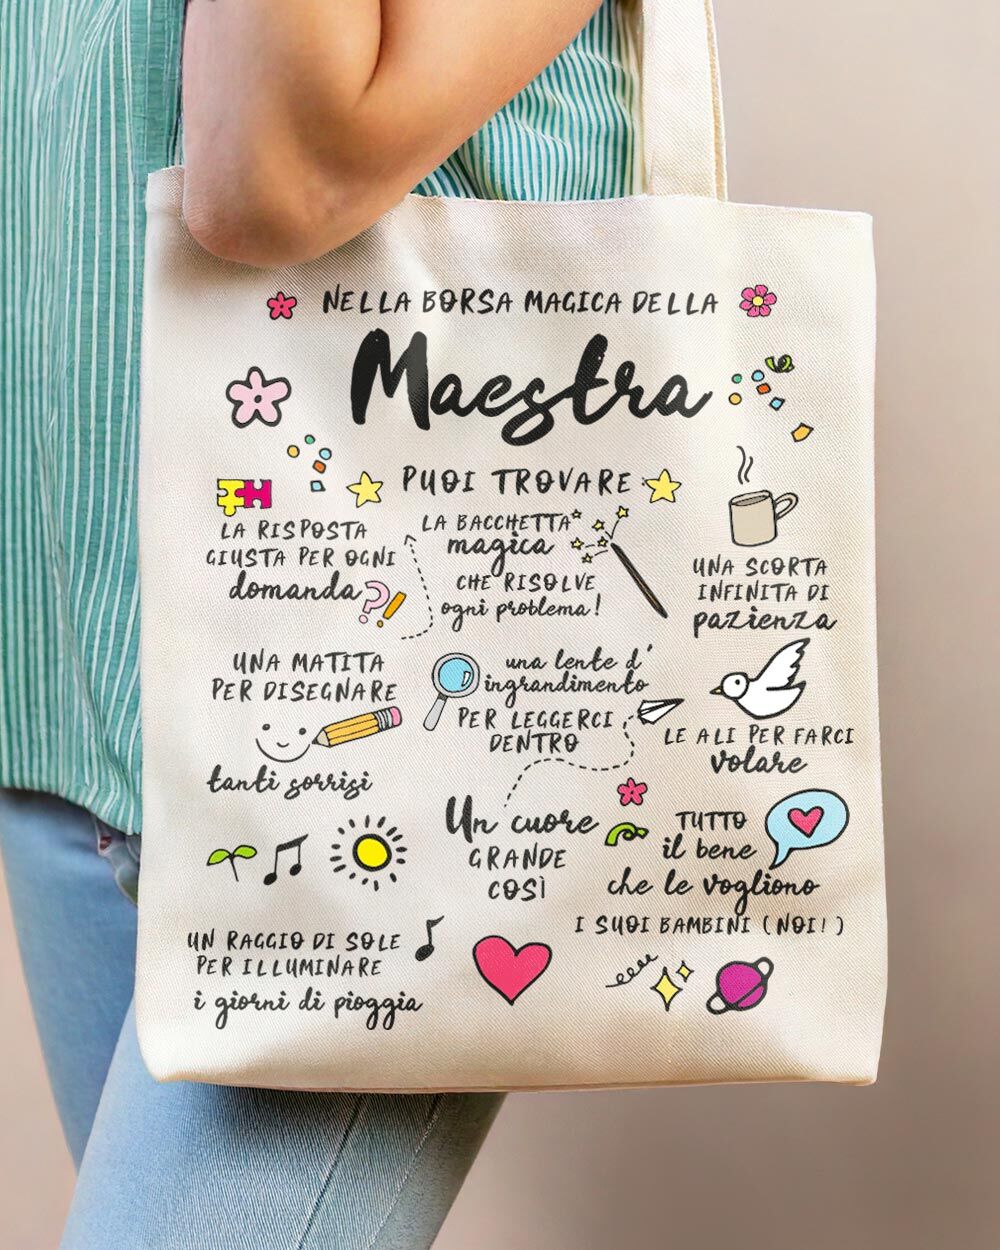 NELLA BORSA MAGICA DELLA
Maestra
PUOI TROVARE
LA RISPOSTA
GIUSTA PER OGNI
domanda
LA BACCHETTA
magica
CHE RISOLVE
ogni problema!
UNA SCORTA
INFINITA DI
pazienza
UNA MATITA
PER DISEGNARE
tanti sorrisi
una lente d'
ingrandimento
PER LEGGERCI
DENTRO
LE ALI PER FARCI
volare
Un cuore
GRANDE
COSÌ
TUTTO
il bene
che le vogliono
I SUOI BAMBINI (NOI!)
UN RAGGIO DI SOLE
PER ILLUMINARE
i giorni di pioggia